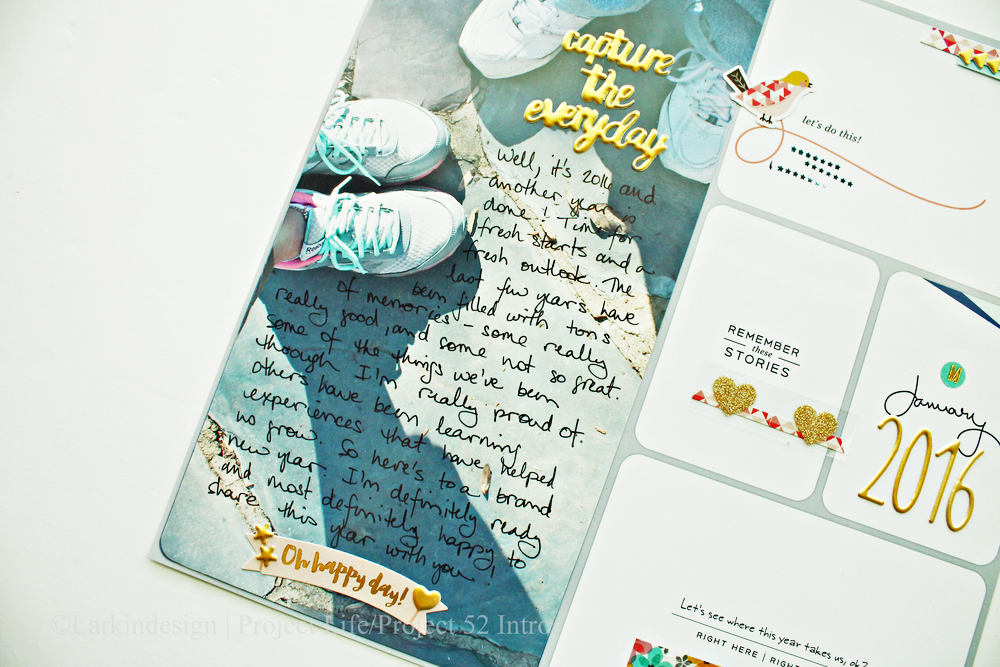 capture
the
everyday
Well, it's 2016 and
another year is
done! Time for
fresh starts and a
fresh outlook. The
last few years have
been filled with tons
of memories - some really
really good, and some not so great.
some of the things we've been
through I'm really proud of.
others have been learning
experiences that have helped
us grow. So here's to a brand
new year. I'm definitely ready
and most definitely happy, to
share this year with you.
Oh happy day!
let's do this!
REMEMBER
these
STORIES
January
2016
Let's see where this year takes us, ok?
RIGHT HERE | RIGHT
Reebok
©Larkindesign | Project Life/Project 52 Intro